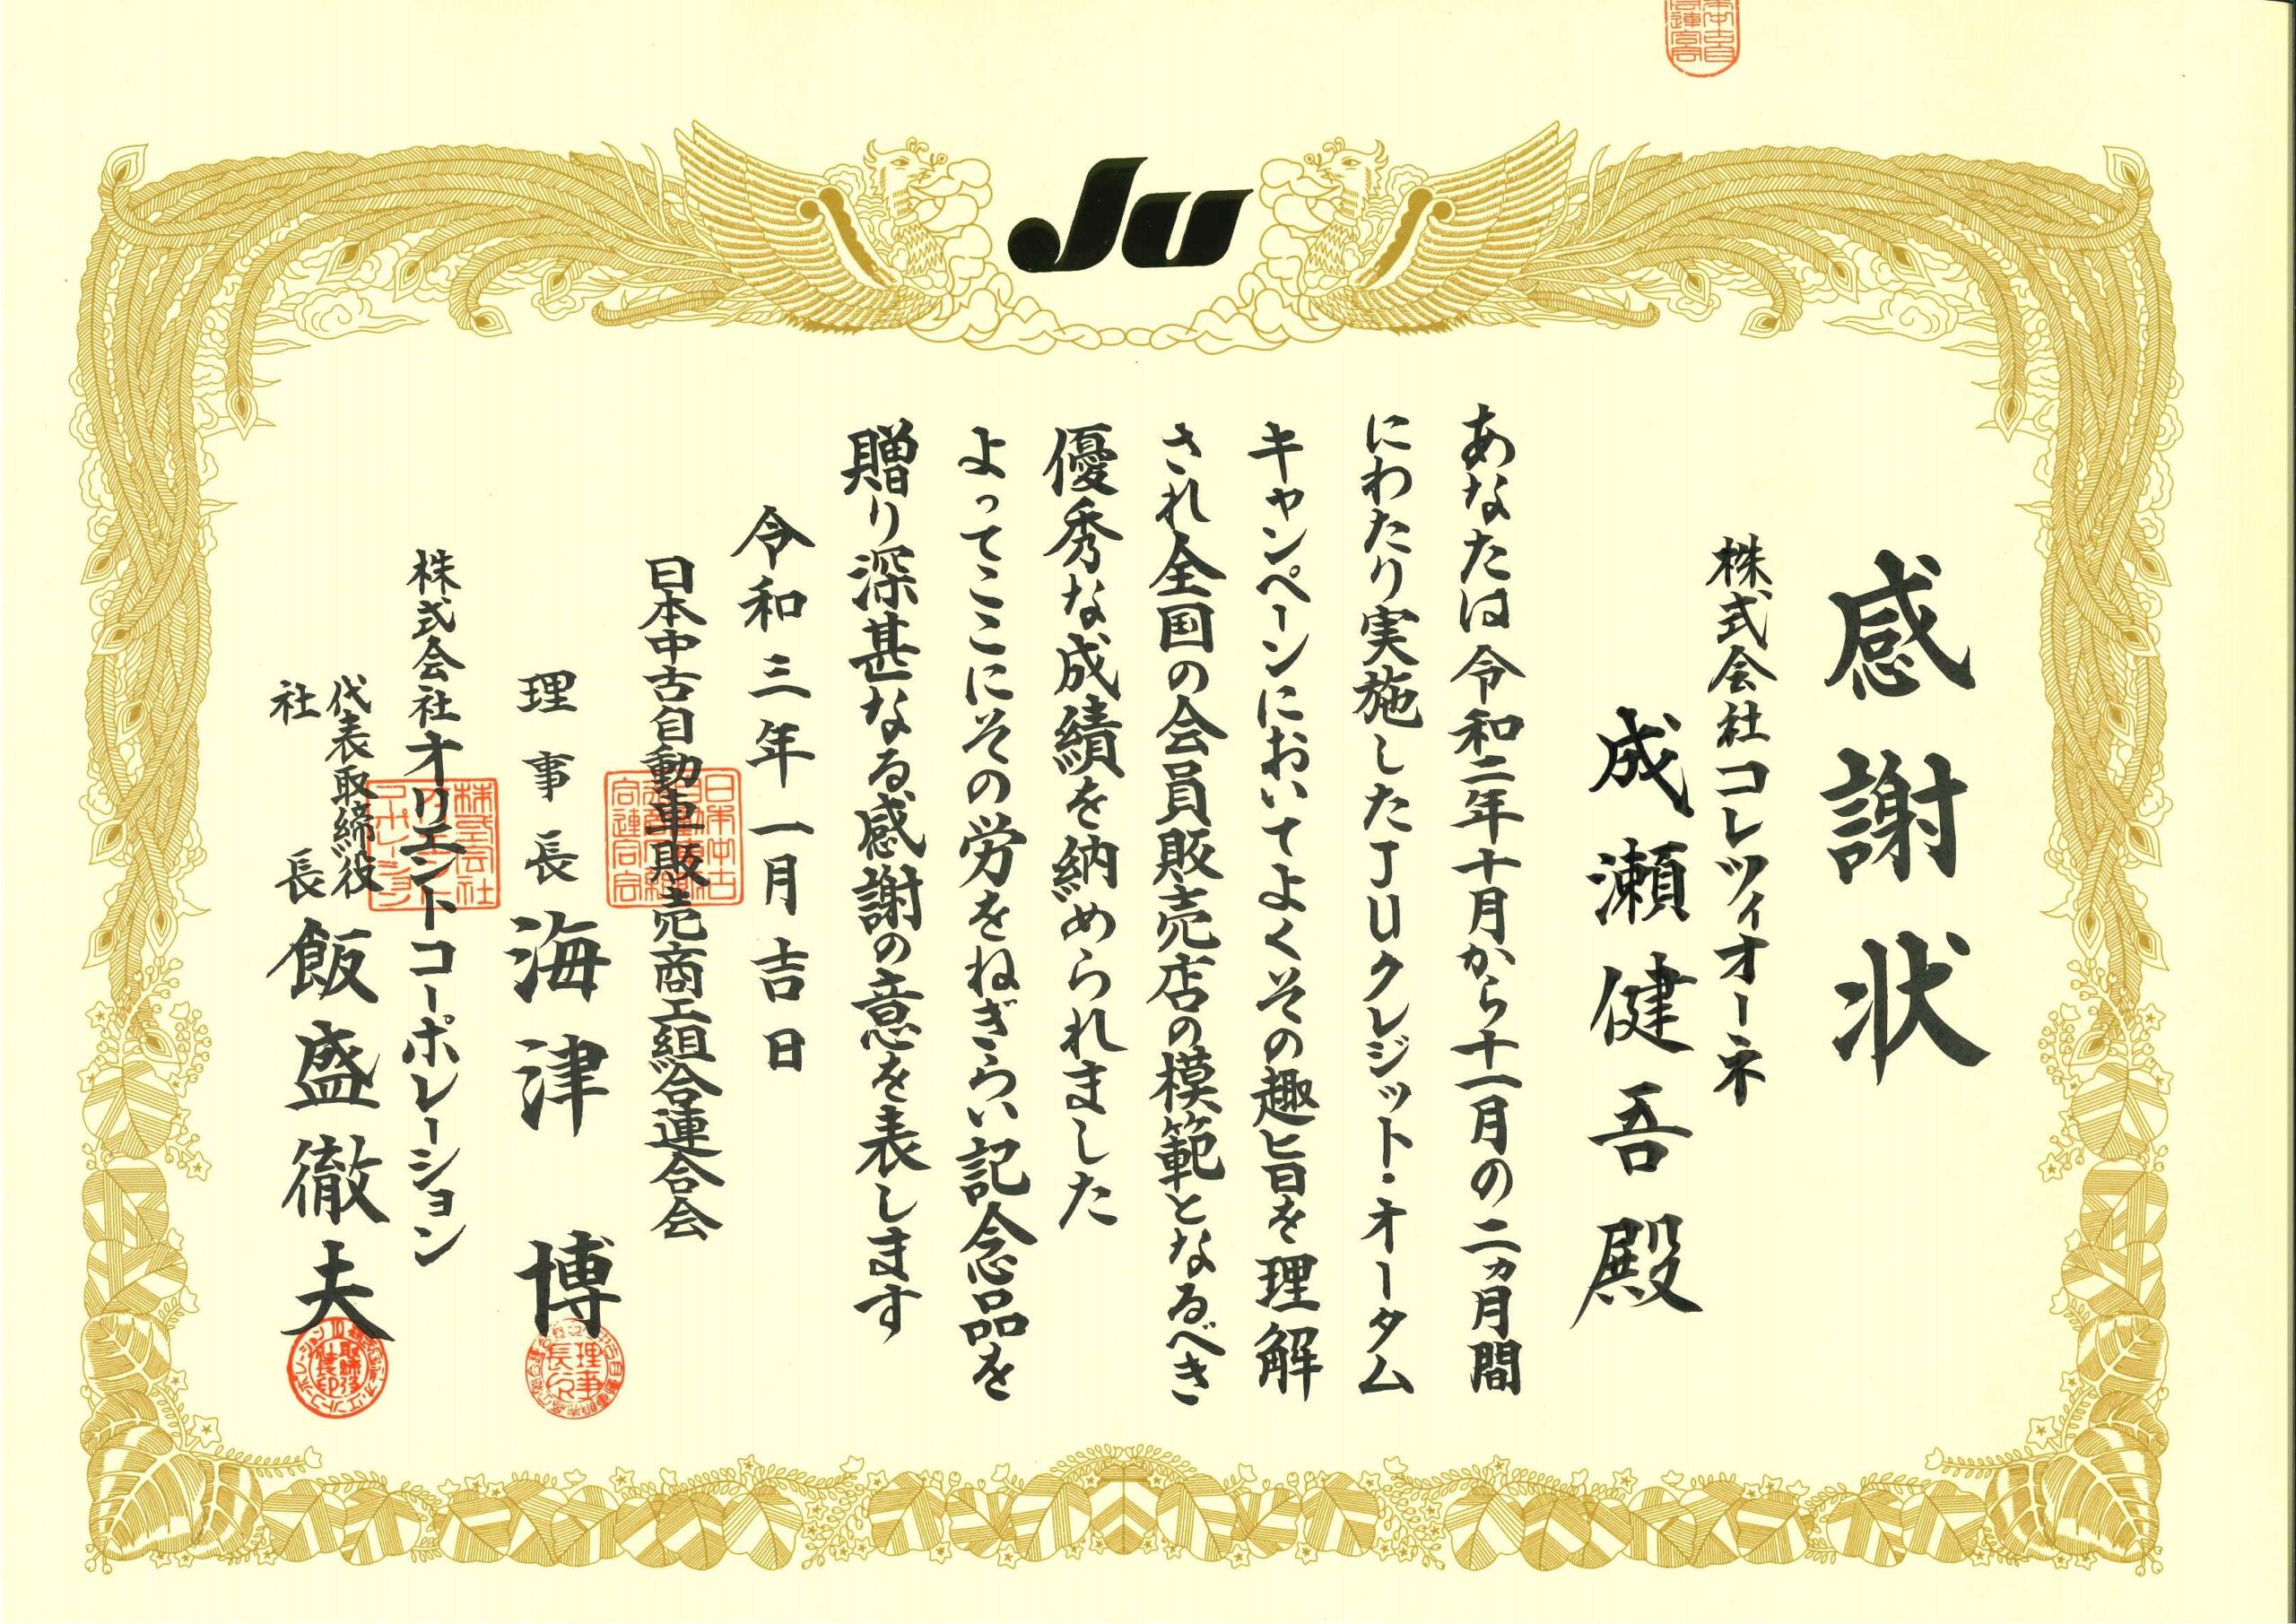 Ju
感謝状
株式会社コレツィオーネ
成瀬健吾殿
あなたは令和二年十月から十一月の二ヵ月間
にわたり実施したJUクレジット・オータム
キャンペーンにおいてよくその趣旨を理解
され全国の会員販売店の模範となるべき
優秀な成績を納められました
よってここにその労をねぎらい記念品を
贈り深甚なる感謝の意を表します
令和三年一月吉日
日本中古自動車販売商工組合連合会
理事長 海津博
株式会社オリエントコーポレーション
代表取締役
社長 飯盛徹夫